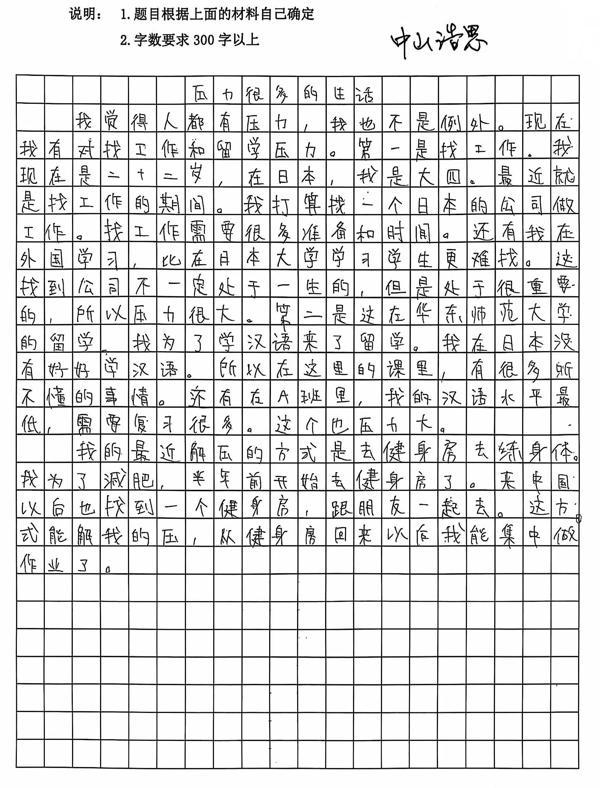 说明： 1.题目根据上面的材料自己确定
2.字数要求300字以上
中山浩思
压力很多的生活
我觉得人都有压力，我也不是例外。现在
我有对找工作和留学压力。第一是找工作。我
现在是二十二岁，在日本，我是大四。最近就
是找工作的期间。我打算找一个日本的公司做
工作。找工作需要很多准备和时间。还有我在
外国学习，比在日本大学学习学生更难找。这
找到公司不一定处于一生的，但是处于很重要
的，所以压力很大。第二是这在华东师范大学
的留学。我为了学汉语来了留学。我在日本没
有好好学汉语。所以在这里的课里，有很多所
不懂的事情。亦有在A班里，我的汉语水平最
低，需要复习很多。这个也压力大。
我的最近解压的方式是去健身房去练身体。
我为了减肥，半年前开始去健身房了。来中国
以后也找到一个健身房，跟朋友一起去。这方
式能解我的压，从健身房回来以后我能集中做
作业了。